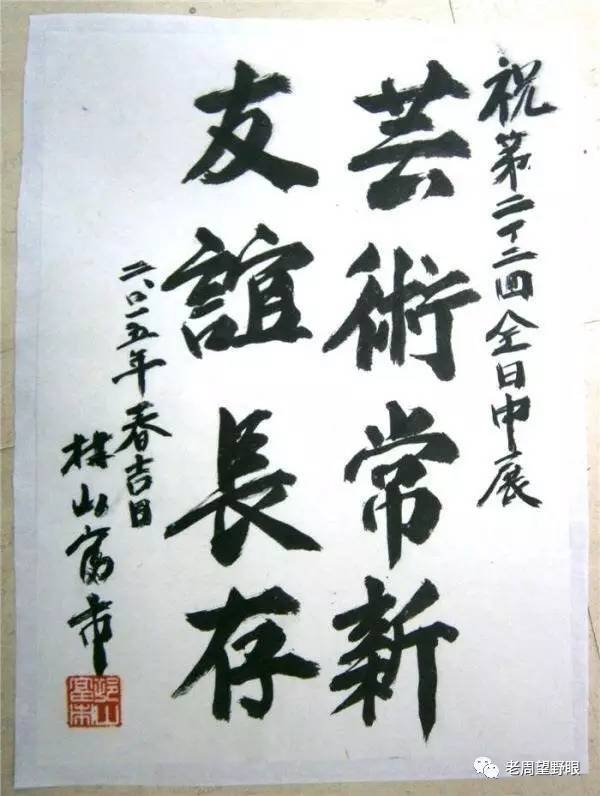 祝第二十二回全日中展
芸術常新
友誼長存
二〇一五年春吉日
村山富市
老周望野眼